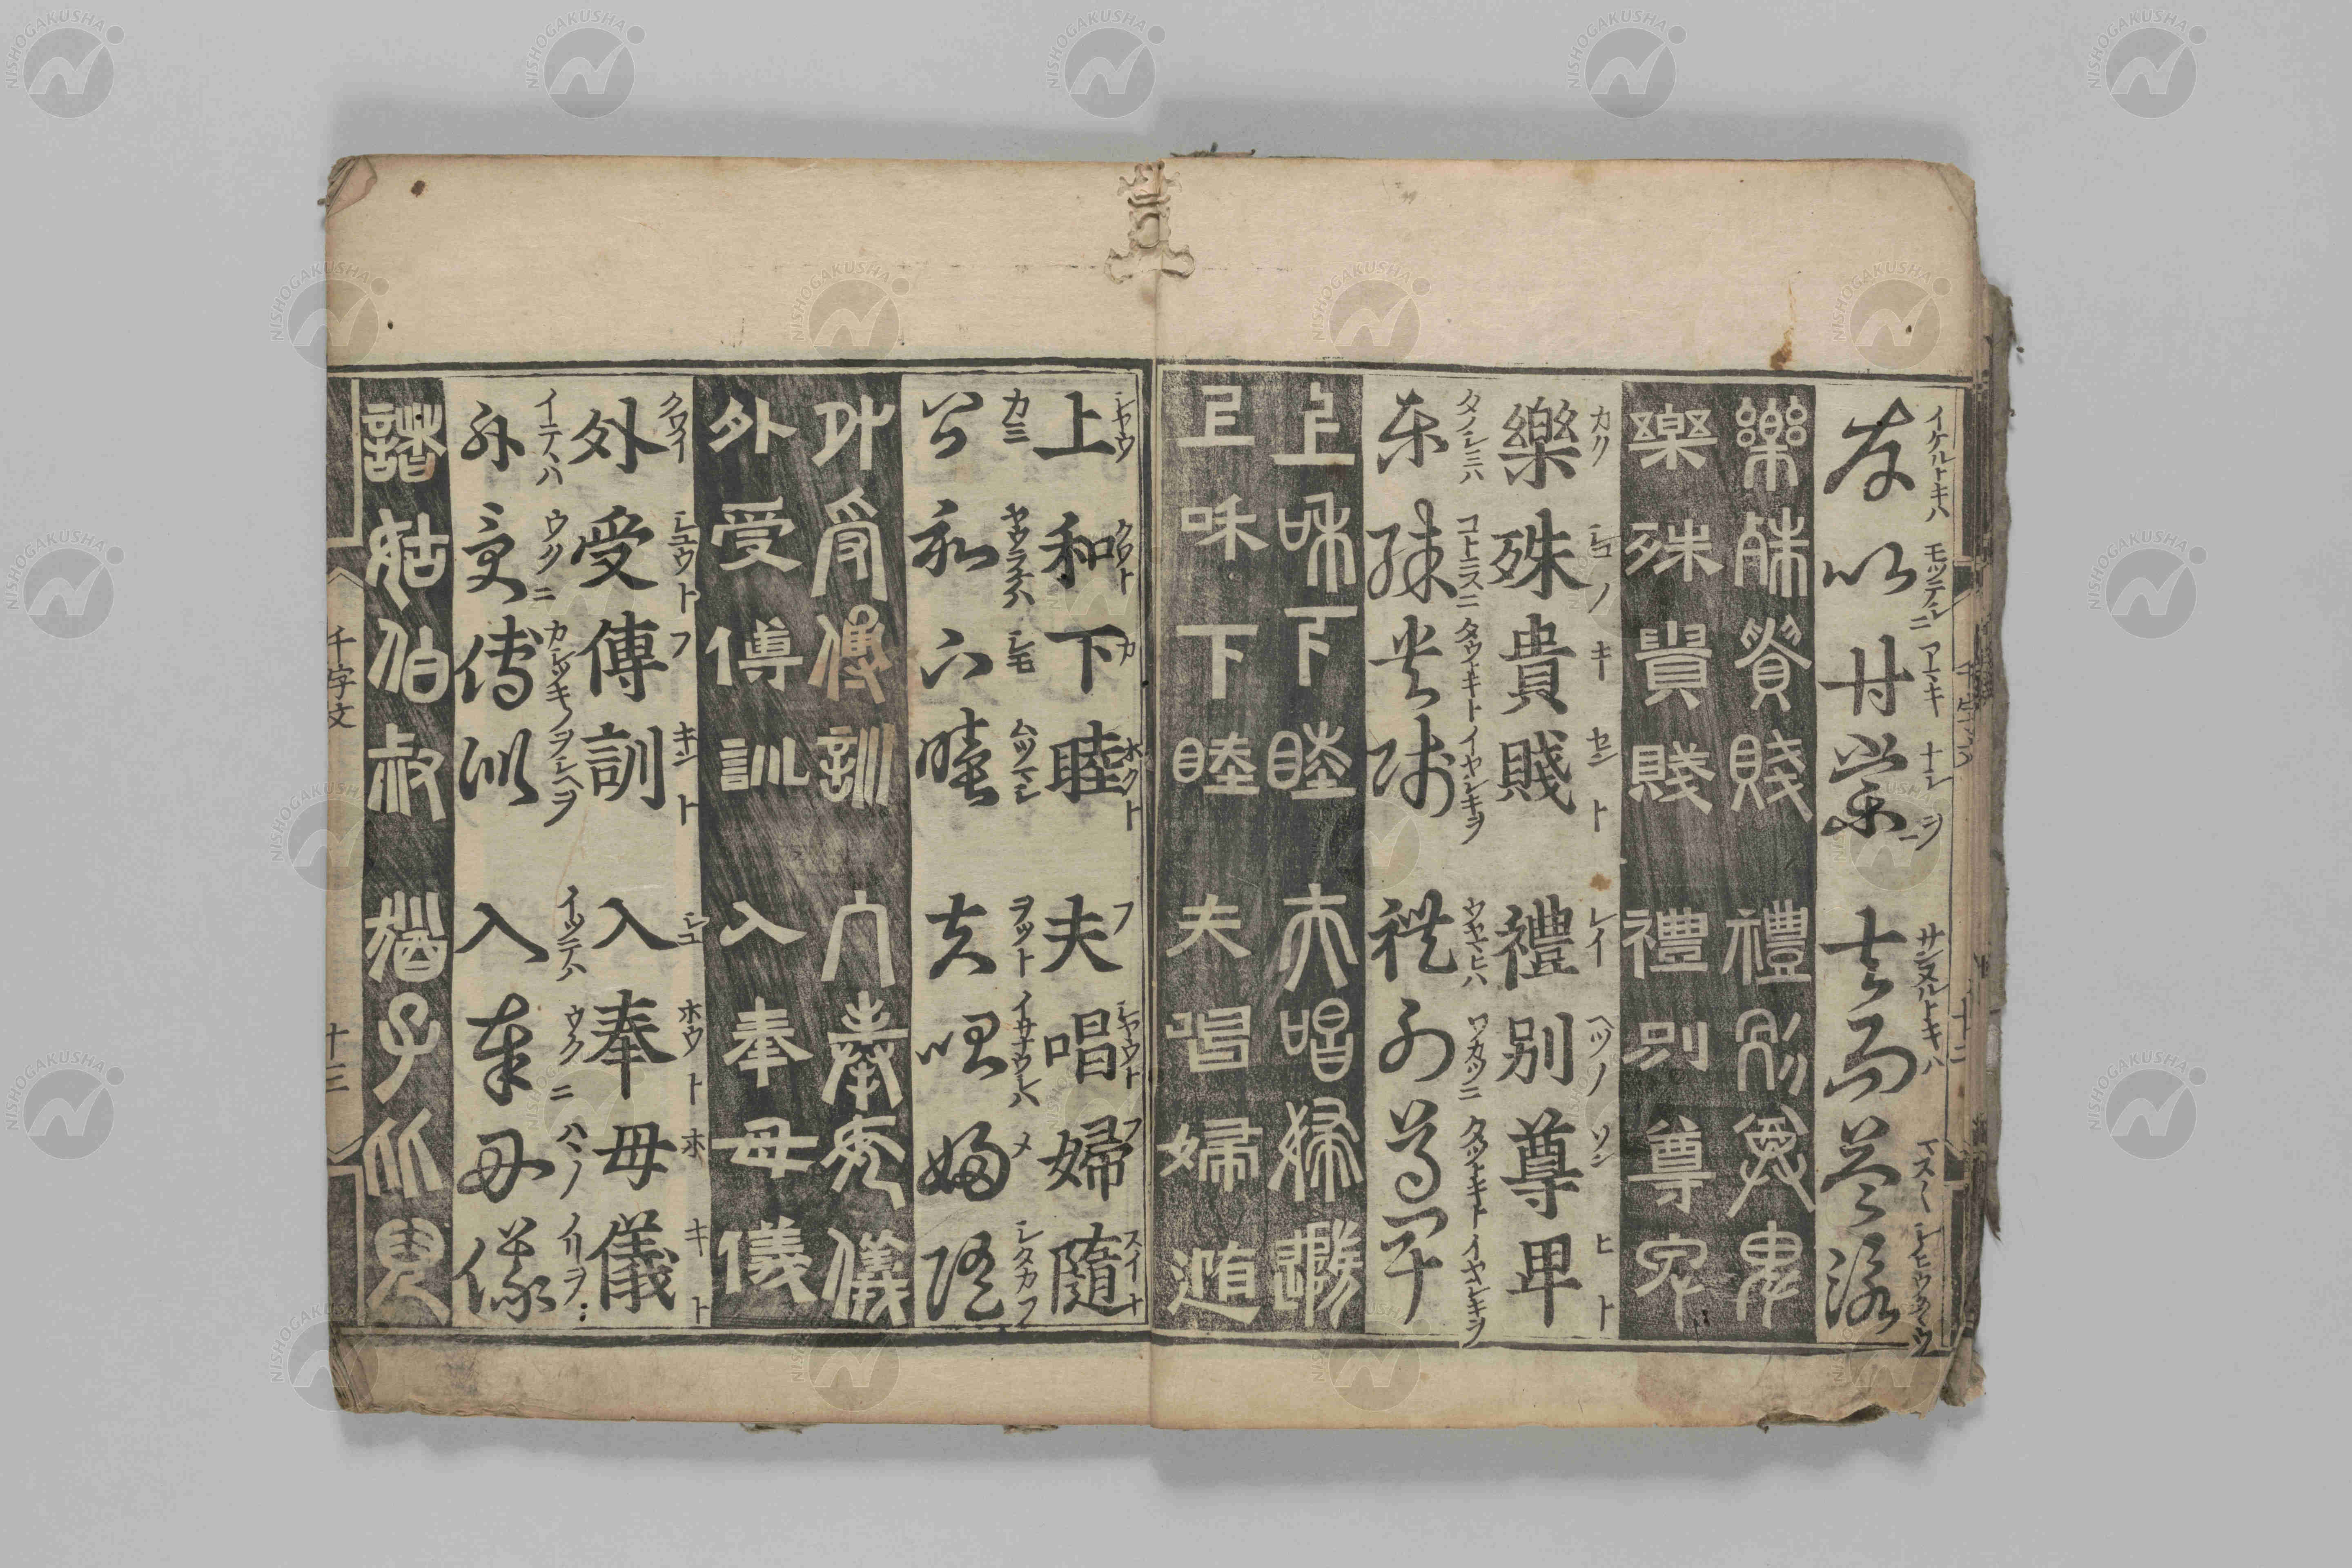 存以甘棠　去而益詠
イケルトキハ　モツテシ　アマキ　ナシヲ　サンヌルトキハ　マス〳〵
樂殊貴賤　禮別尊卑
樂殊貴賤　禮別尊卑
樂殊貴賤　禮別尊卑
カク　シユノ　キ　センート　レイ　ヘツノ　ソン　ヒート
樂殊貴賤　禮別尊卑
タノシミハ　コトニス　タウトキト　イヤシキヲ　ウヤマヒハ　ワカツ　タツトキト　イヤシキヲ
上和下睦　夫唱婦隨
上和下睦　夫唱婦隨
上和下睦　夫唱婦隨
シヤウ　クワート　カ　ホクート　フ　シヤウート　フ　スイート
上和下睦　夫唱婦隨
カミ　ヤワラケハ　シモ　ムツマシ　ヲツト　イサナウ　メ　シタカフ
外受傅訓　入奉母儀
外受傅訓　入奉母儀
外受傅訓　入奉母儀
クワイ　シユウート　フ　キンート　シユ　ホウート　ホ　キート
外受傅訓　入奉母儀
イテハ　ウク　カシツキノ　ヲシヘヲ　イツテハ　ウク　ハヽノ
諸姑伯叔　猶子比兒
千字文
十三